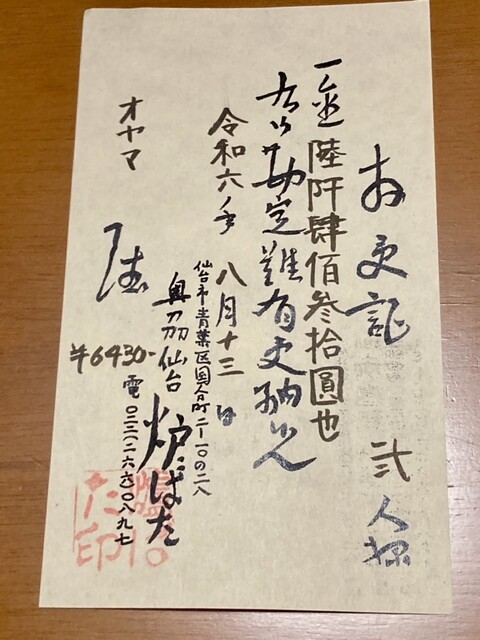 お受証 弐人様
一金陸阡肆佰参拾圓也
右御勘定難有受納候
令和六年八月十三日
仙台市青葉区国分町二ー一〇の二八
奥州仙台 炉ばた
電〇二二(二六六)〇八九七
オヤマ 様
¥6430-